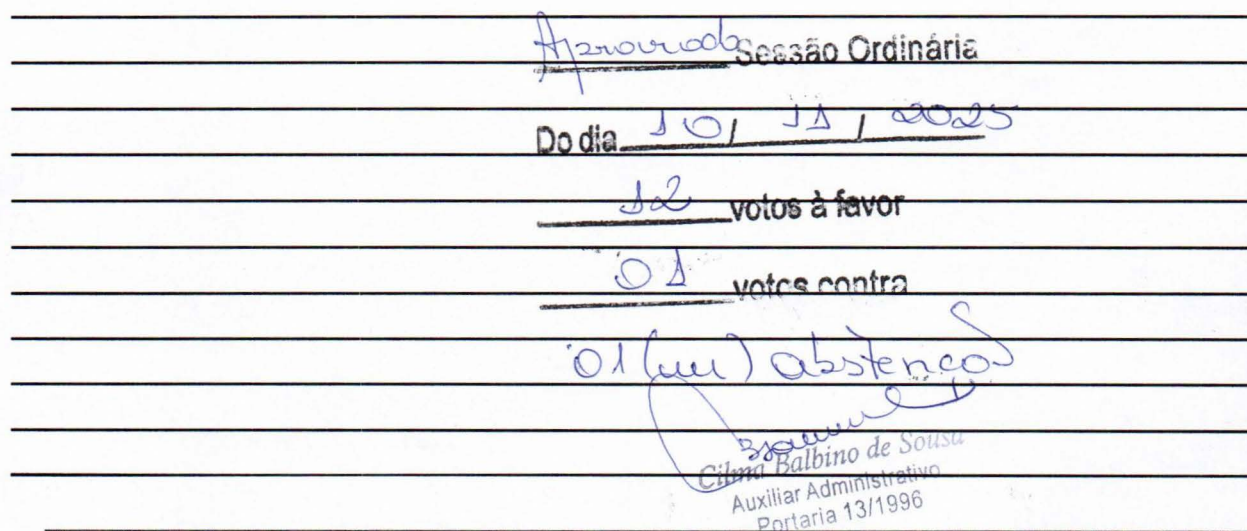 Aprovado Sessão Ordinária
Do dia 10 / 11 / 2025
12 votos à favor
01 votos contra
01 (um) abstenção
Cilma Balbino de Sousa
Auxiliar Administrativo
Portaria 13/1996